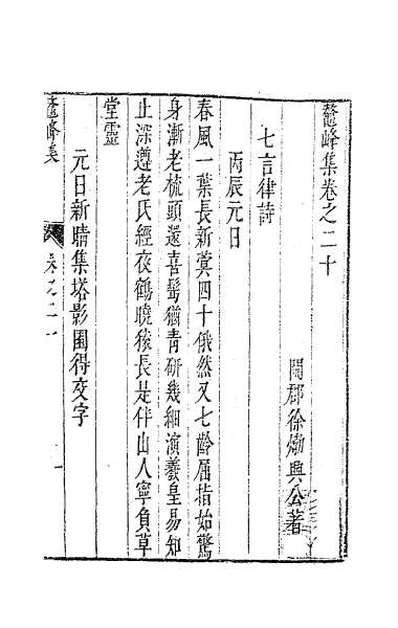 鼇峰集卷之二十
閩郡徐𤊹興公著
七言律詩
丙辰元日
春風一葉長新蓂四十俄然又七齡屈指始驚
身漸老梳頭還喜鬢猶青研幾細演羲皇易知
止深遵老氏經夜鶴曉猿長是伴山人寧負草
堂靈
元日新晴集塔影園得交字
鼇峰集
卷之二十
一